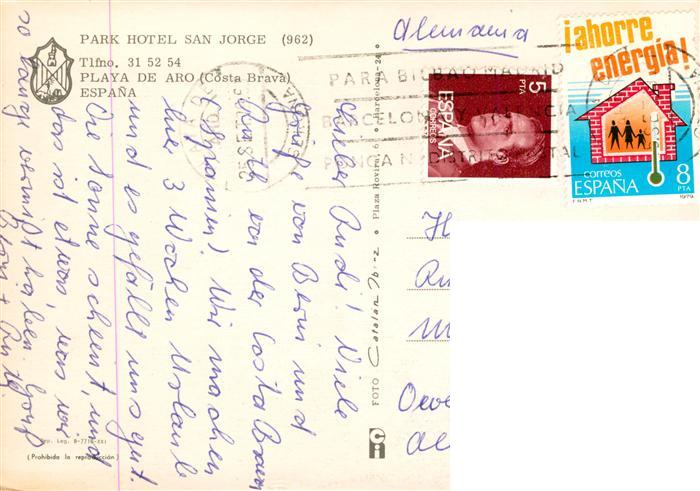 PARK HOTEL SAN JORGE (962)
Tlfno. 31 52 54
PLAYA DE ARO (Costa Brava)
ESPAÑA
Alemania
¡ahorre
energía!
correos
ESPAÑA
8
PTA
F.N.M.T.
1979
5
PTA
ESPAÑA
CORREOS
PARA BILBAO MADRID
BARCELONA
PONGA DISTRITO POSTAL
Lieber Rudi! Viele
Grüße von Berni und
Ruth von der Costa Brava
(Spanien). Wir machen
hier 3 Wochen Urlaub
und es gefällt uns gut.
Die Sonne scheint, und
das ist etwas, was wir
so lange vermißt haben.
Berni + Ruth
FOTO Catalan Ibiza • Plaza Rovira, 6 • Barcelona-24 •
Dep. Leg. B-7716-XXI
(Prohibida la reproducción)